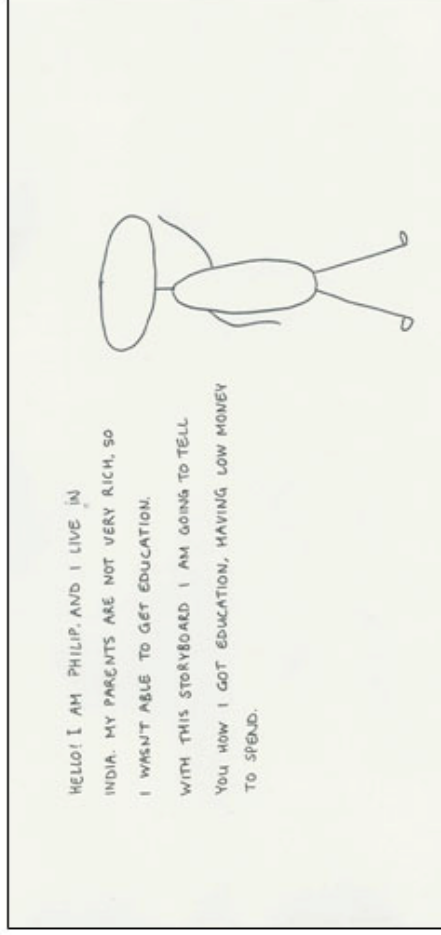 HELLO! I AM PHILIP. AND I LIVE IN
INDIA. MY PARENTS ARE NOT VERY RICH, SO
I WASN'T ABLE TO GET EDUCATION.
WITH THIS STORYBOARD I AM GOING TO TELL
YOU HOW I GOT EDUCATION, HAVING LOW MONEY
TO SPEND.